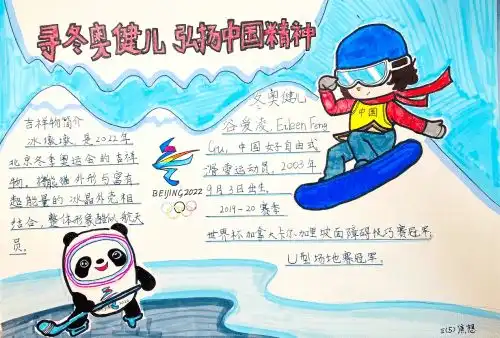 寻冬奥健儿 弘扬中国精神
吉祥物简介
冰墩墩，是2022年
北京冬季奥运会的吉祥
物。将熊猫外形与富有
超能量的冰晶外壳相
结合，整体形象酷似航天
员。
BEIJING 2022
冬奥健儿
谷爱凌，Eileen Feng
Gu，中国女子自由式
滑雪运动员，2003年
9月3日出生。
2019-20赛季
世界杯加拿大卡尔加里坡面障碍技巧赛冠军，
U型场地赛冠军。
中国